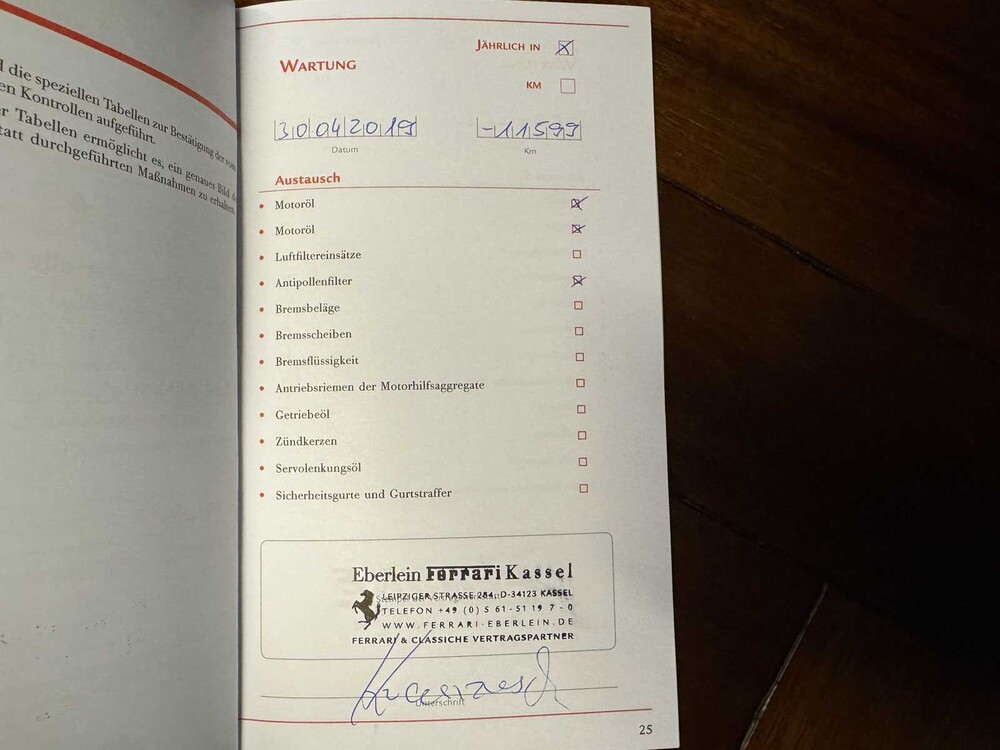 d die speziellen Tabellen zur Bestätigung der vom
en Kontrollen aufgeführt.
r Tabellen ermöglicht es, ein genaues Bild d
tatt durchgeführten Maßnahmen zu erhalten
WARTUNG
JÄHRLICH IN
KM
30042019
-11599
Datum
Km
Austausch
• Motoröl
• Motoröl
• Luftfiltereinsätze
• Antipollenfilter
• Bremsbeläge
• Bremsscheiben
• Bremsflüssigkeit
• Antriebsriemen der Motorhilfsaggregate
• Getriebeöl
• Zündkerzen
• Servolenkungsöl
• Sicherheitsgurte und Gurtstraffer
Eberlein Ferrari Kassel
LEIPZIGER STRASSE 284, D-34123 KASSEL
TELEFON +49 (0) 5 61-51 19 7-0
WWW.FERRARI-EBERLEIN.DE
FERRARI & CLASSICHE VERTRAGSPARTNER
Unterschrift
25